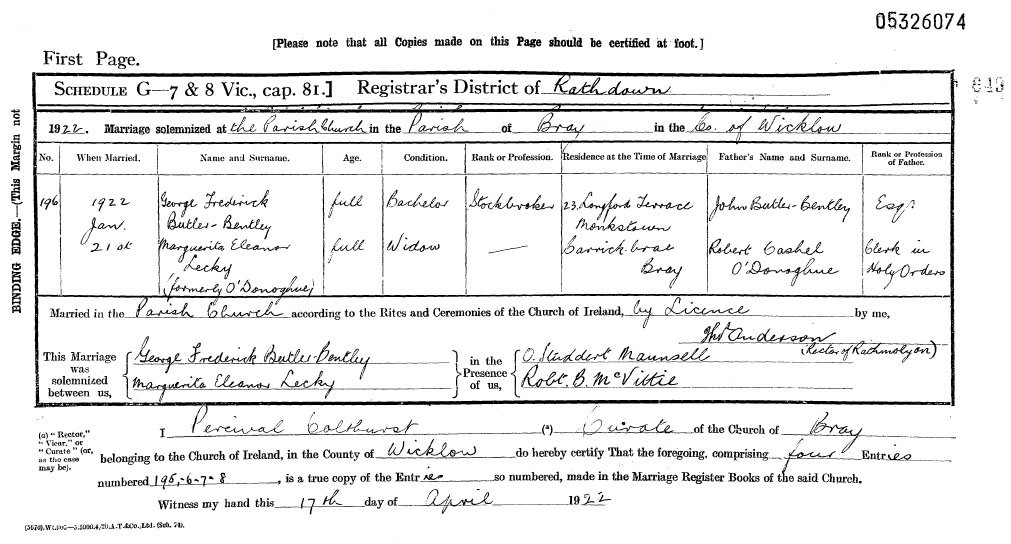 05326074
[Please note that all Copies made on this Page should be certified at foot.]
First Page.
SCHEDULE G—7 & 8 Vic., cap. 81.] Registrar's District of Rathdown
649
1922. Marriage solemnized at the Parish Church in the Parish of Bray in the Co. of Wicklow
No. When Married. Name and Surname. Age. Condition. Rank or Profession. Residence at the Time of Marriage Father's Name and Surname. Rank or Profession of Father.
196 1922 George Frederick full Bachelor Stockbroker 23, Longford Terrace John Butler-Bentley Esqr
Jan. Butler-Bentley Monkstown
21st Marguerita Eleanor full Widow — Carrick-brae Robert Cashel Clerk in
Lecky Bray O'Donoghue Holy Orders
(formerly O'Donoghue)
Married in the Parish Church according to the Rites and Ceremonies of the Church of Ireland, by Licence by me,
Thos Anderson
(Rector of Rathmolyon)
This Marriage was solemnized between us, George Frederick Butler-Bentley in the Presence of us, O. Studdert Maunsell
Marguerita Eleanor Lecky Robt. B. McVittie
(a) "Rector," "Vicar," or "Curate" (or, as the case may be).
I Percival Colthurst (a) Curate of the Church of Bray
belonging to the Church of Ireland, in the County of Wicklow do hereby certify That the foregoing, comprising four Entries
numbered 195,-6-7-8, is a true copy of the Entries so numbered, made in the Marriage Register Books of the said Church.
Witness my hand this 17th day of April 1922
BINDING EDGE.—(This Margin not